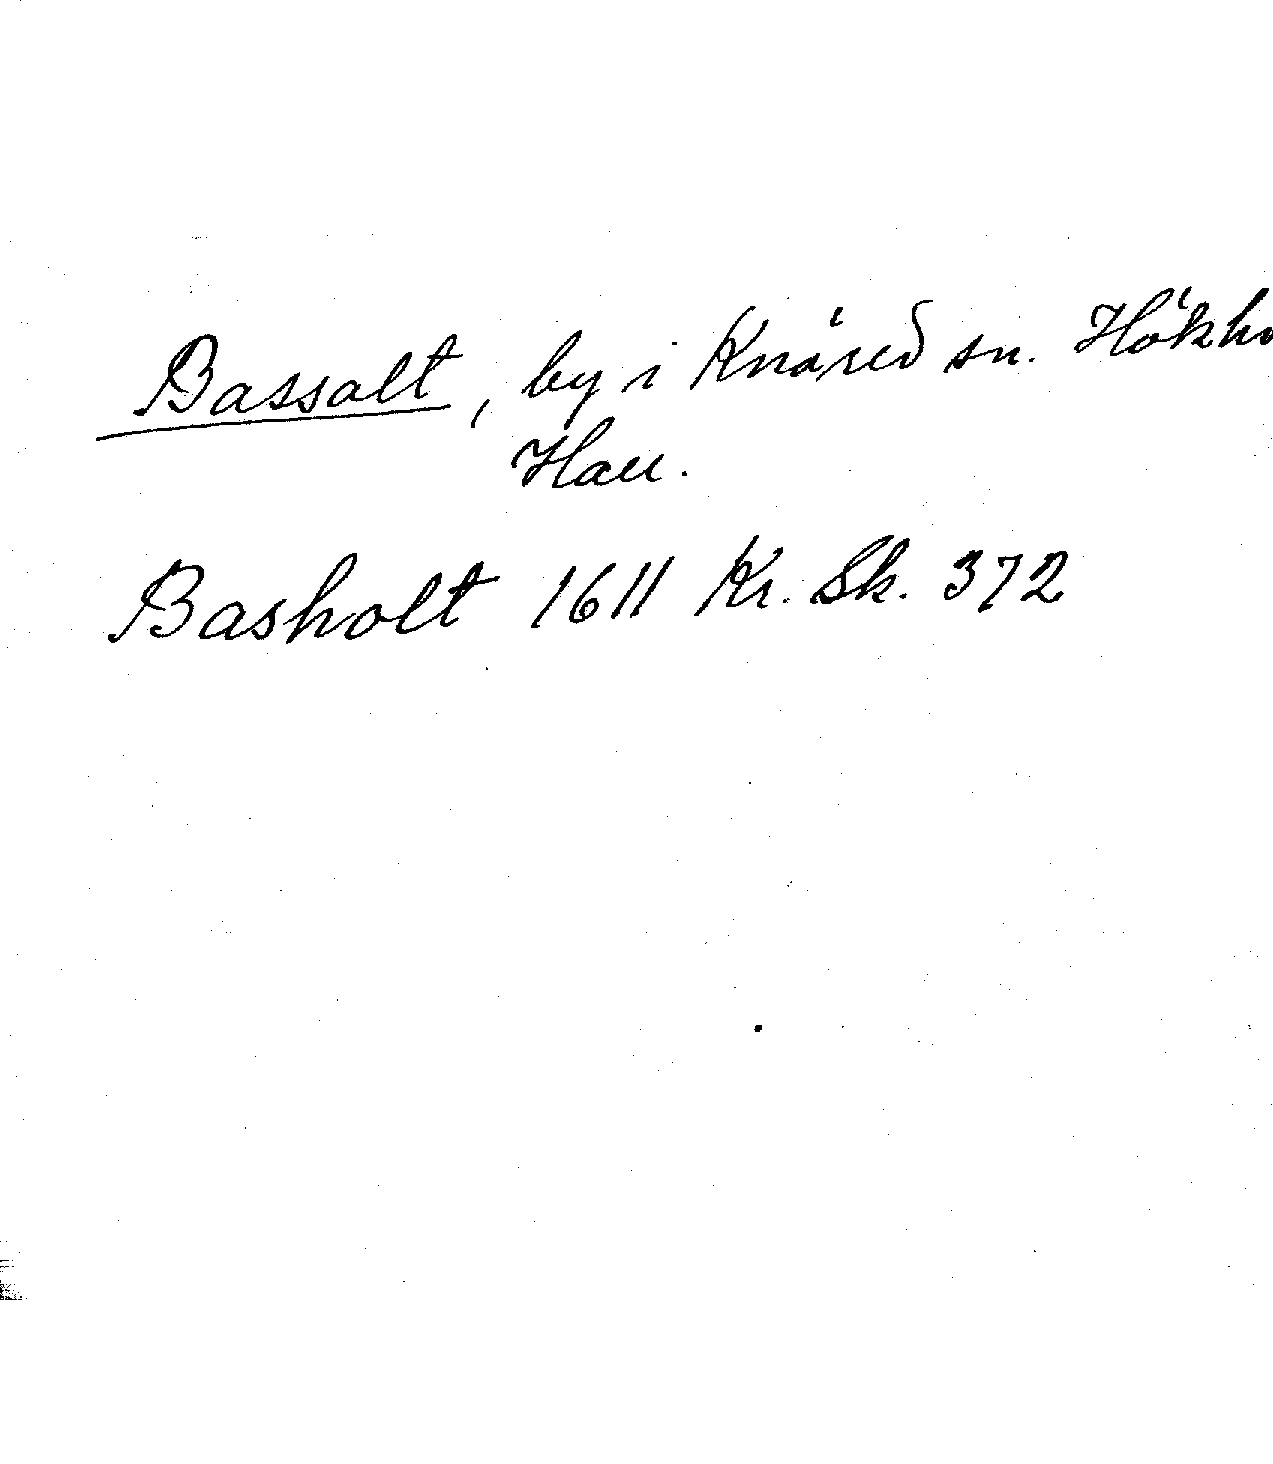 Bassalt, by i Knäred sn. Hökh
Hall.
Basholt 1611 Kr. Sk. 372